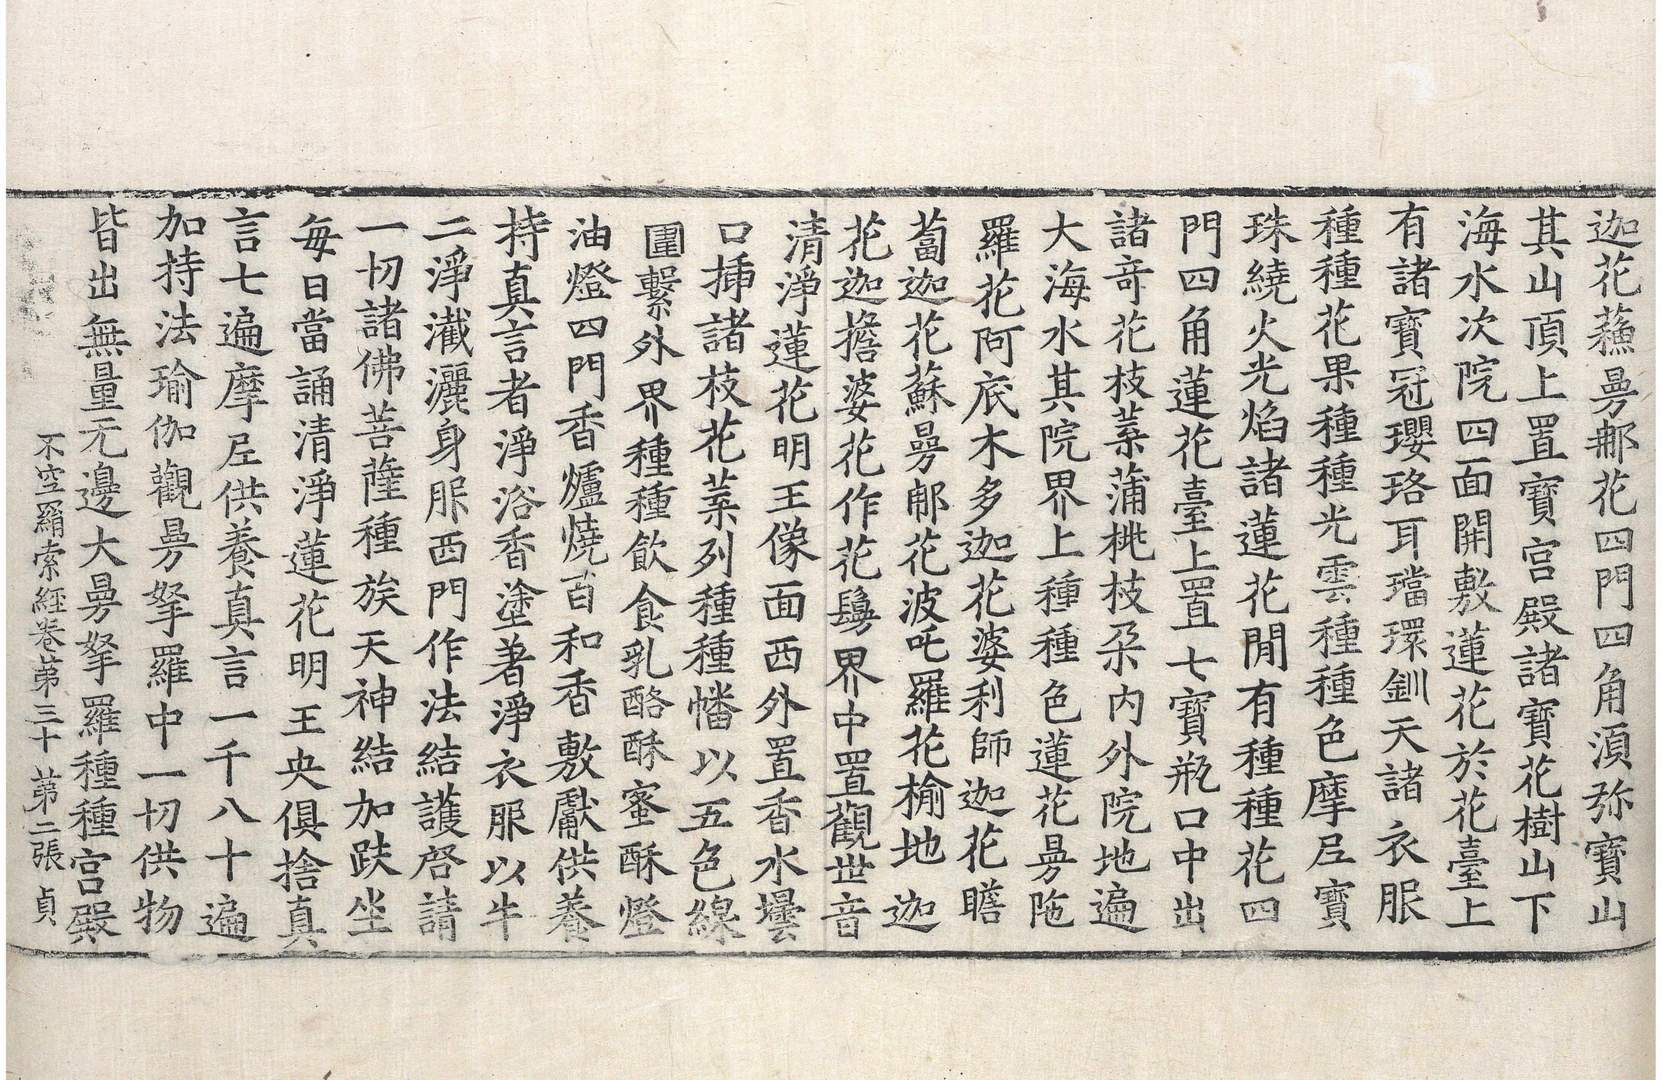 迦花蘓曼𨚗花四門四角湏弥寶山
其山頂上置寶宮殿諸寶花樹山下
海水次院四面開敷蓮花於花臺上
有諸寶冠瓔珞耳璫環釧天諸衣服
種種花果種種光雲種種色摩尼寶
珠繞火光焰諸蓮花閒有種種花四
門四角蓮花臺上置七寶瓶口中出
諸竒花枝葉蒲桃枝朵內外院地遍
大海水其院界上種種色蓮花曼陁
羅花阿底木多迦花婆利師迦花瞻
蔔迦花蘇曼𨚗花波吒羅花榆地迦
花迦擔婆花作花鬘界中置觀世音
清淨蓮花明王像面西外置香水壜
口揷諸枝花葉列種種幡以五色線
圍繫外界種種飲食乳酪酥蜜酥燈
油燈四門香爐燒百和香敷獻供養
持真言者淨浴香塗著淨衣服以牛
二淨潅灑身服西門作法結護啓請
一切諸佛菩薩種族天神結加趺坐
每日當誦清淨蓮花明王央俱捨真
言七遍摩尼供養真言一千八十遍
加持法瑜伽觀曼拏羅中一切供物
皆出無量无邊大曼拏羅種種宮殿
不空羂索經卷第三十 第二張 貞